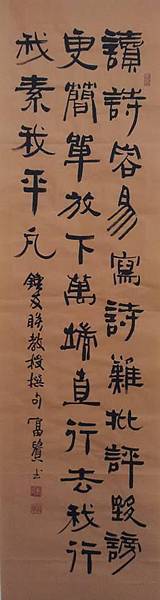 讀詩容易寫詩難批評毀謗
更簡單放下萬端直行去我行
我素我平凡
鍾友聯教授撰句